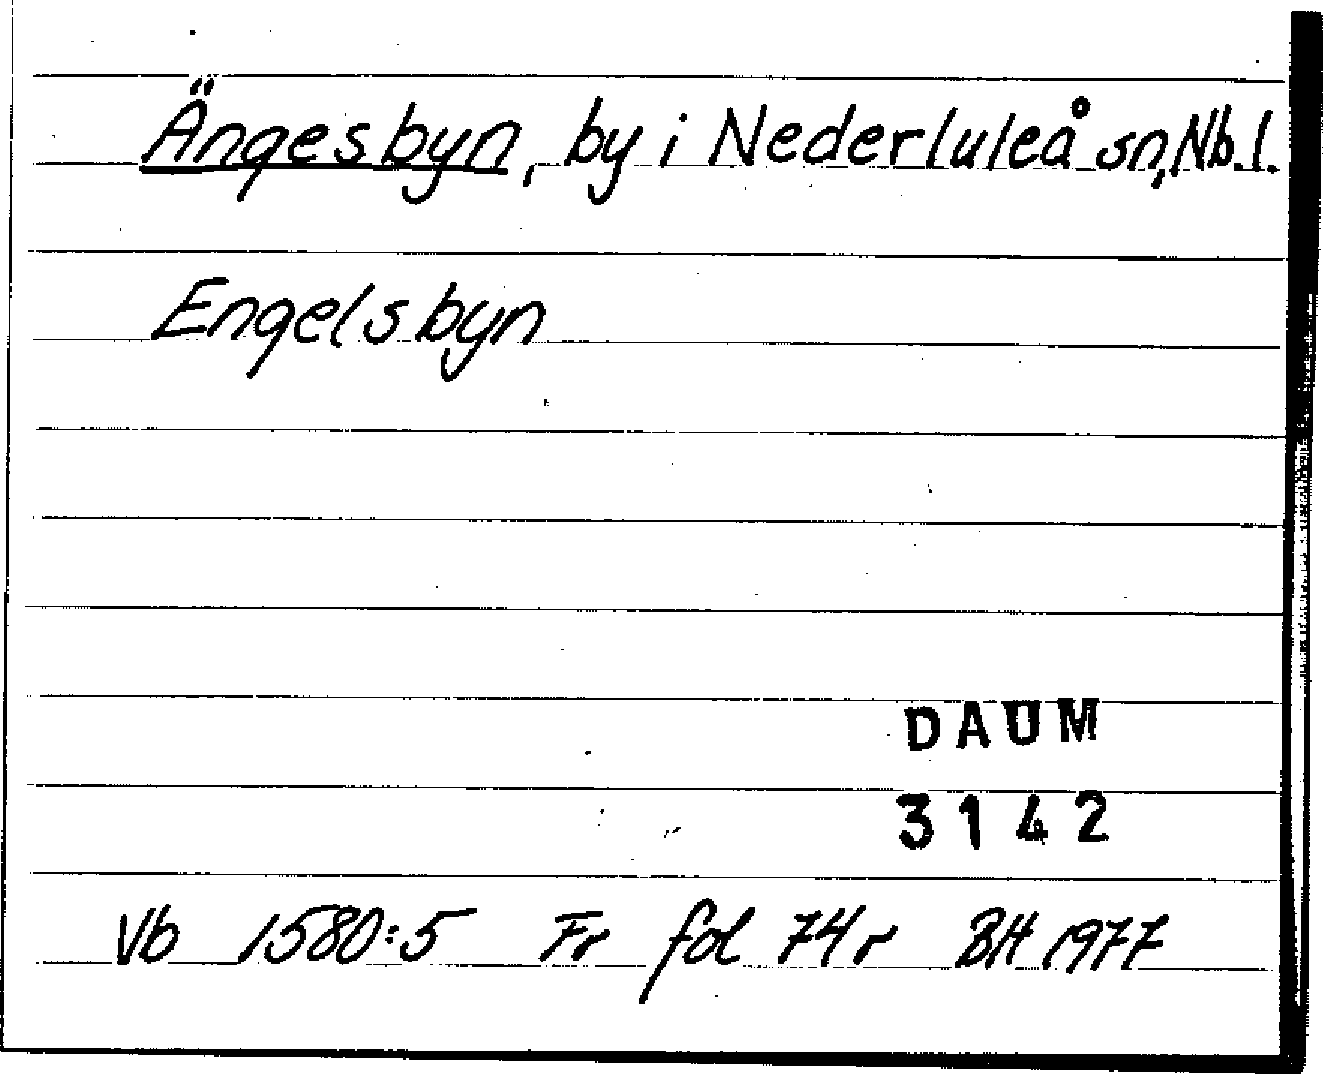 Ängesbyn, by i Nederluleå sn, Nb.l.
Engelsbyn
DAUM
3142
Vb 1580:5 Fr fol 74r BH 1977